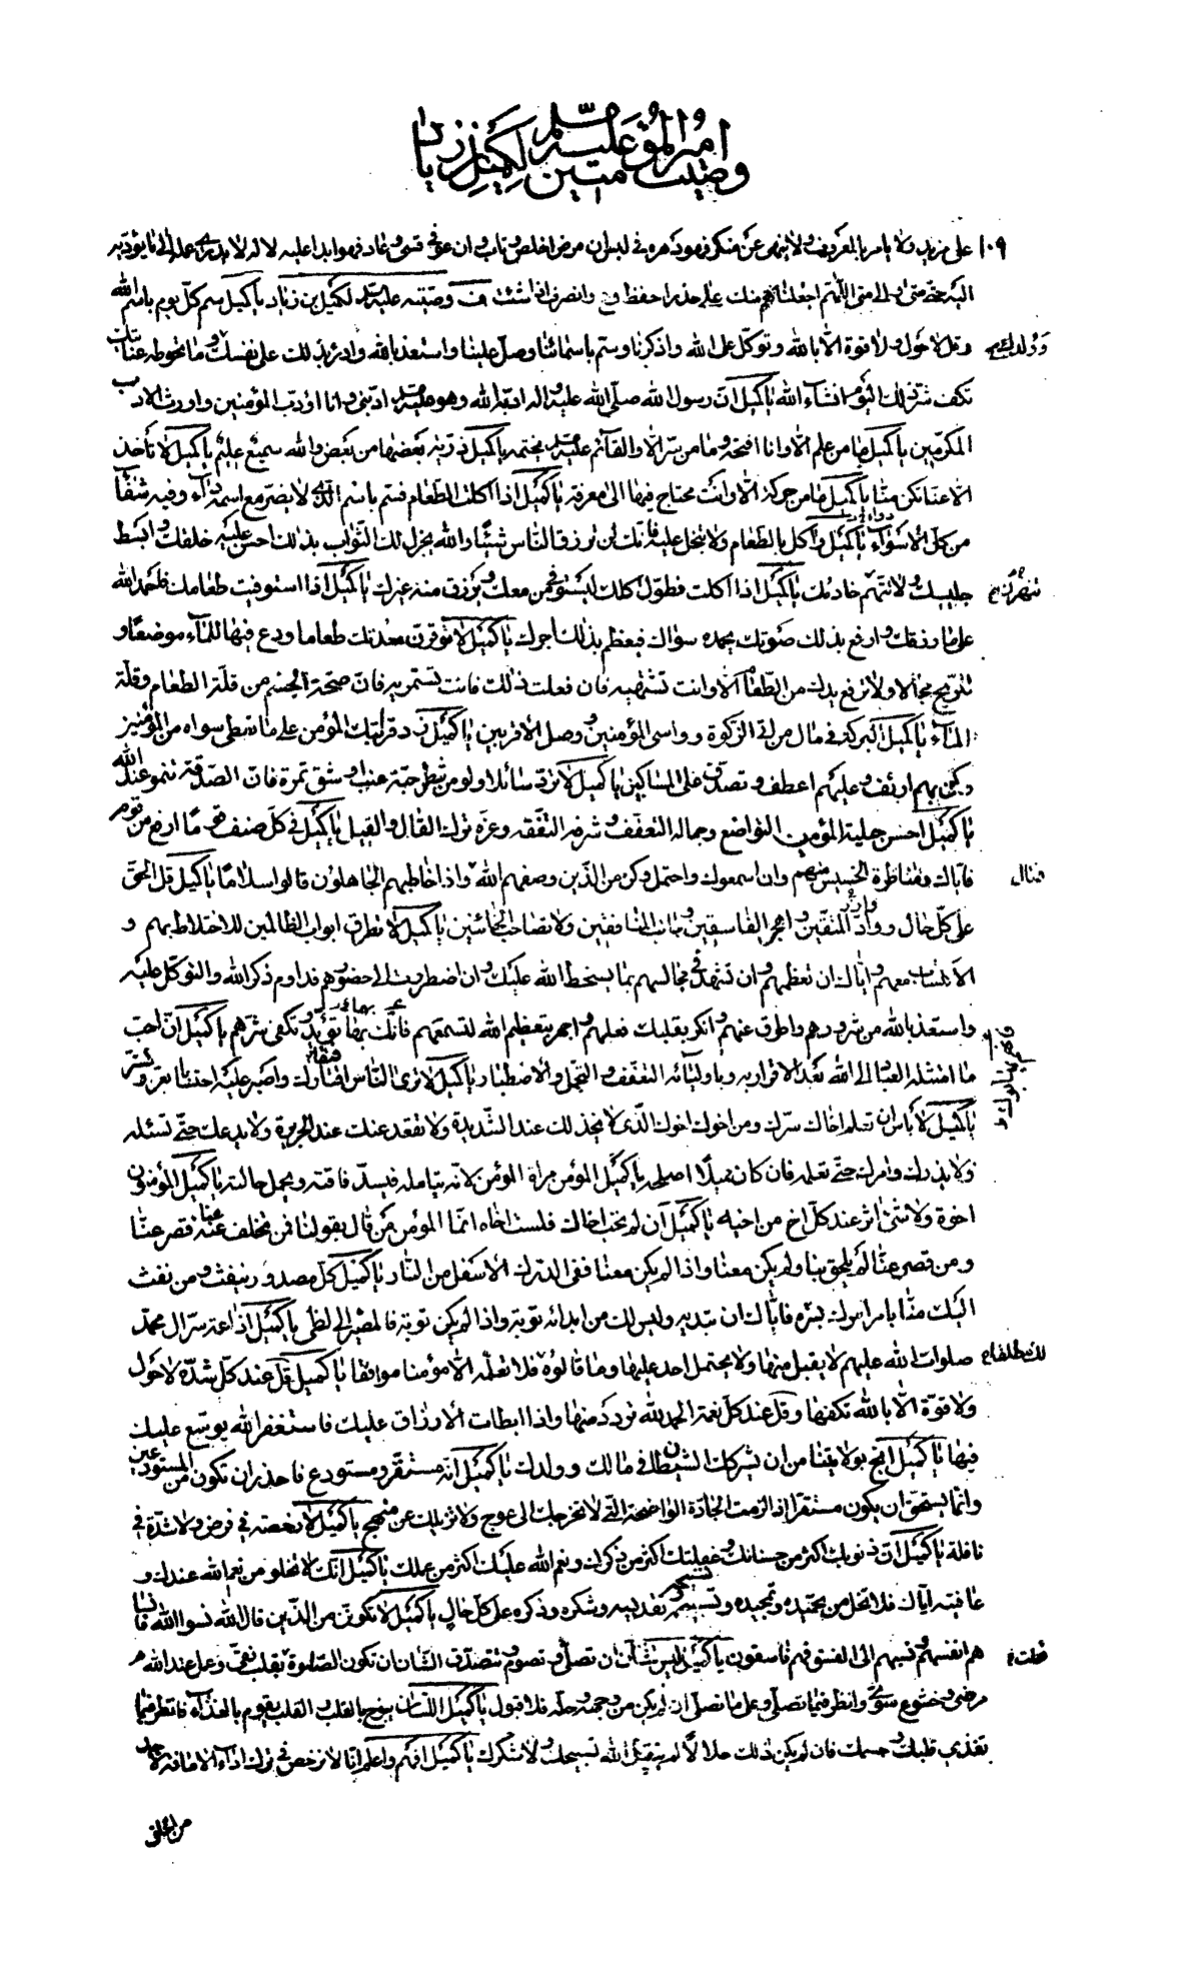 وصيت امير المؤمنين عليه السلم لكميل بن زياد
١٠٩ على مزيد ولا يامر بالمعروف ولا ينهى عن منكر فهو
البتة حتى متى الى متى اللهم اجعلنا منك على حذر احفظ وع وانصرف اذا شئت ف وصيته عليه السلم لكميل بن زياد يا كميل سم كل يوم باسم الله
وقل لا حول ولا قوة الا بالله وتوكل على الله واذكرنا وسم باسمائنا وصل علينا واستعذ بالله وادرء بذلك على نفسك وما تحوطه عنايتك
تكف شر ذلك اليوم انشاء الله يا كميل ان رسول الله صلى الله عليه واله ادبه الله وهو عليه السلم ادبنى وانا اؤدب المؤمنين واورث الادب
المكرمين يا كميل ما من علم الا وانا افتحه وما من سر الا والقائم عليه السلم يختمه يا كميل ذرية بعضها من بعض والله سميع عليم يا كميل لا تأخذ
الا عنا تكن منا يا كميل ما من حركة الا وانت محتاج فيها الى معرفة يا كميل اذا اكلت الطعام فسم باسم الذى لا يضر مع اسمه داء وفيه شفاء
من كل الاسواء يا كميل واكل بالطعام ولا تبخل عليه فانك لن ترزق الناس شيئا والله يجزل لك الثواب بذلك احسن عليه خلقك وابسط
جليسك ولا تتهم خادمك يا كميل اذا اكلت فطول اكلك ليستوفى من معك ويرزق منه غيرك يا كميل اذا استوفيت طعامك فاحمد الله
على ما رزقك وارفع بذلك صوتك يحمده سواك فيعظم بذلك اجرك يا كميل لا توقرن معدتك طعاما ودع فيها للماء موضعا و
للريح مجالا ولا ترفع يدك من الطعام الا وانت تشتهيه فان فعلت ذلك فانت تستمريه فان صحة الجسم من قلة الطعام وقلة
الماء يا كميل البركة فى مال من اتى الزكوة وواسى المؤمنين ووصل الاقربين يا كميل زد قرابتك المؤمن على ما تعطى سواه من المؤمنين
وكن بهم ارئف وعليهم اعطف وتصدق على المساكين يا كميل لا ترد سائلا ولو من شطر حبة عنب او شق تمرة فان الصدقة تنمو عند الله
يا كميل احسن حلية المؤمن التواضع وجماله التعفف وشرفه التفقه وعزه ترك القال والقيل يا كميل فى كل صنف قوما ارفع من قوم
فاياك ومناظرة الخسيس منهم وان اسمعوك واحتمل وكن من الذين وصفهم الله واذا خاطبهم الجاهلون قالوا سلاما يا كميل قل الحق
على كل حال وواد المتقين واهجر الفاسقين وجانب المنافقين ولا تصاحب الخائنين يا كميل لا تطرق ابواب الظالمين للاختلاط بهم و
الاكتساب معهم واياك ان تعظمهم وان تشهد فى مجالسهم بما يسخط الله عليك وان اضطررت الى حضورهم فداوم ذكر الله والتوكل عليه
واستعذ بالله من شرورهم واطرق عنهم وانكر بقلبك فعلهم واجهر بتعظيم الله لتسمعهم فانك بها تؤيد وتكفى شرهم يا كميل ان احب
ما امتثله العباد الى الله بعد الاقرار به وباوليائه التعفف والتحمل والاصطبار يا كميل لا ترى الناس اقتارك واصبر عليه احتسابا بعز وتستر
يا كميل لا بأس ان تعلم اخاك سرك ومن اخوك اخوك الذى لا يخذلك عند الشديدة ولا يقعد عنك عند الجريرة ولا يدعك حتى تسئله
ولا يذرك وامرك حتى تعلمه فان كان مميلا اصلحه يا كميل المؤمن مراة المؤمن لانه يتامله فيسد فاقته ويجمل حالته يا كميل المؤمنون
اخوة ولا شئ اثر عند كل اخ من اخيه يا كميل ان لم تحب اخاك فلست اخاه انما المؤمن من قال بقولنا فمن تخلف عنه قصر عنا
ومن قصر عنا لم يلحق بنا ولم يكن معنا واذا لم يكن معنا ففى الدرك الاسفل من النار يا كميل كل مصدور ينفث ومن نفث
اليك منا بامر امرك بستره فاياك ان تبديه وليس لك من ابدائه توبة واذا لم يكن توبة فالمصير الى لظى يا كميل اذاعة سر ال محمد
صلوات الله عليهم لا يقبل منها ولا يحتمل احد عليها وما قالوه فلا تعلم الا مؤمنا موافقا يا كميل قل عند كل شدة لا حول
ولا قوة الا بالله تكفها وقل عند كل نعمة الحمد لله تزدد منها واذا ابطات الارزاق عليك فاستغفر الله يوسع عليك
فيها يا كميل انج بولايتنا من ان يشركك الشيطان فى مالك وولدك يا كميل انه مستقر ومستودع فاحذر ان تكون من المستودعين
وانما يستحق ان يكون مستقرا اذا لزمت الجادة الواضحة التى لا تخرجك الى عوج ولا تزيلك عن منهج يا كميل لا رخصة فى فرض ولا شدة فى
نافلة يا كميل ان ذنوبك اكثر من حسناتك وغفلتك اكثر من ذكرك ونعم الله عليك اكثر من عملك يا كميل انك لا تخلو من نعم الله عندك و
عافيته اياك فلا تخل من تحميده وتمجيده وتسبيحه وتقديسه وشكره وذكره على كل حال يا كميل لا تكونن من الذين قال الله نسوا الله فانسا
هم انفسهم ونسبهم الى الفسق فهم فاسقون يا كميل ليس الشأن ان تصلى وتصوم وتتصدق الشان ان تكون الصلوة بقلب نقى وعمل عند الله
مرضى وخشوع سوى وانظر فيما تصلى وعلى ما تصلى ان لم يكن من وجهه وحله فلا قبول يا كميل اللسان ينزح بالقلب والقلب يقوم بالغذاء فانظر فيما
تغذى قلبك وجسمك فان لم يكن ذلك حلالا لم يتقبل الله تسبيحك ولا شكرك يا كميل افهم واعلم انا لا نرخص فى ترك اداء الامانة لاحد
من الخلق